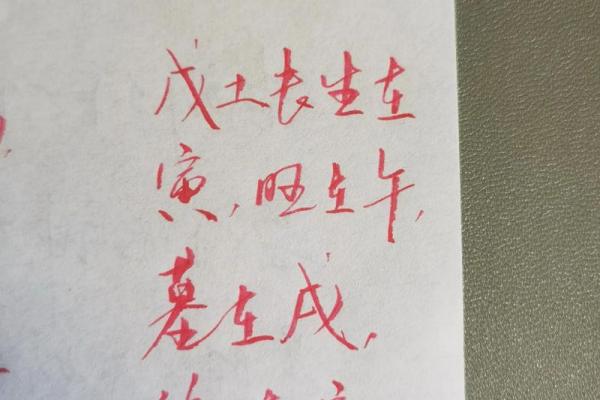 戊土长生在
寅,旺在午,
墓在戌,